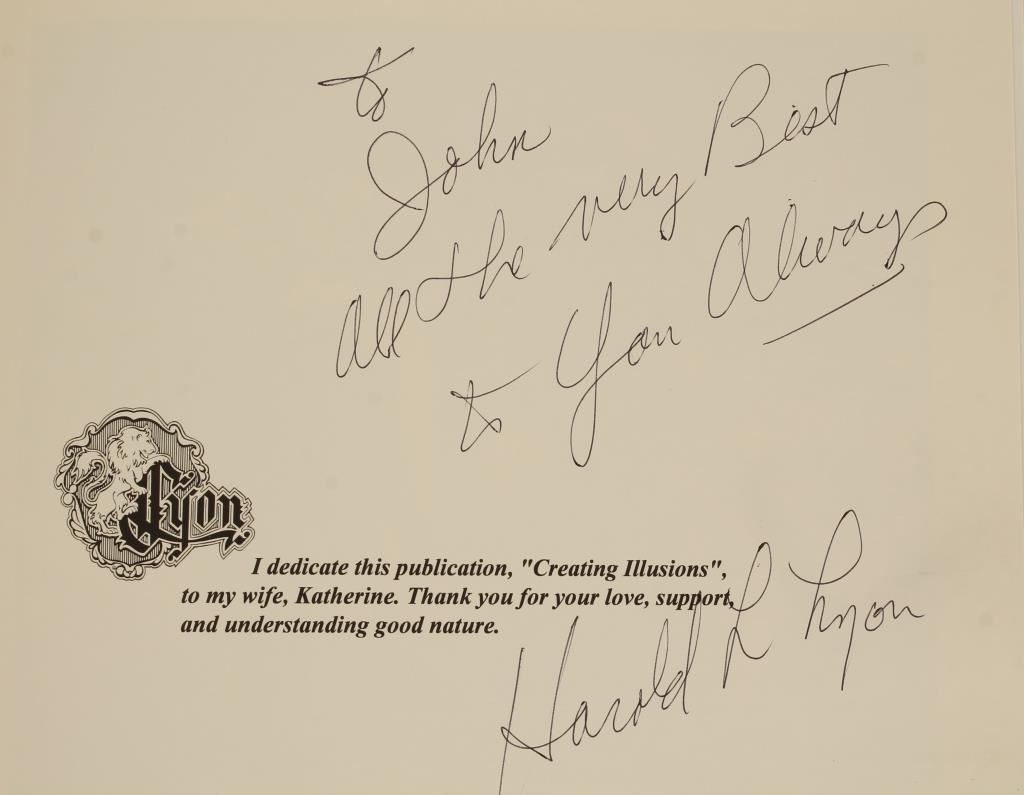 to
John
All the very Best
to You Always
Lyon
I dedicate this publication, "Creating Illusions",
to my wife, Katherine. Thank you for your love, support,
and understanding good nature.
Harold L Lyon